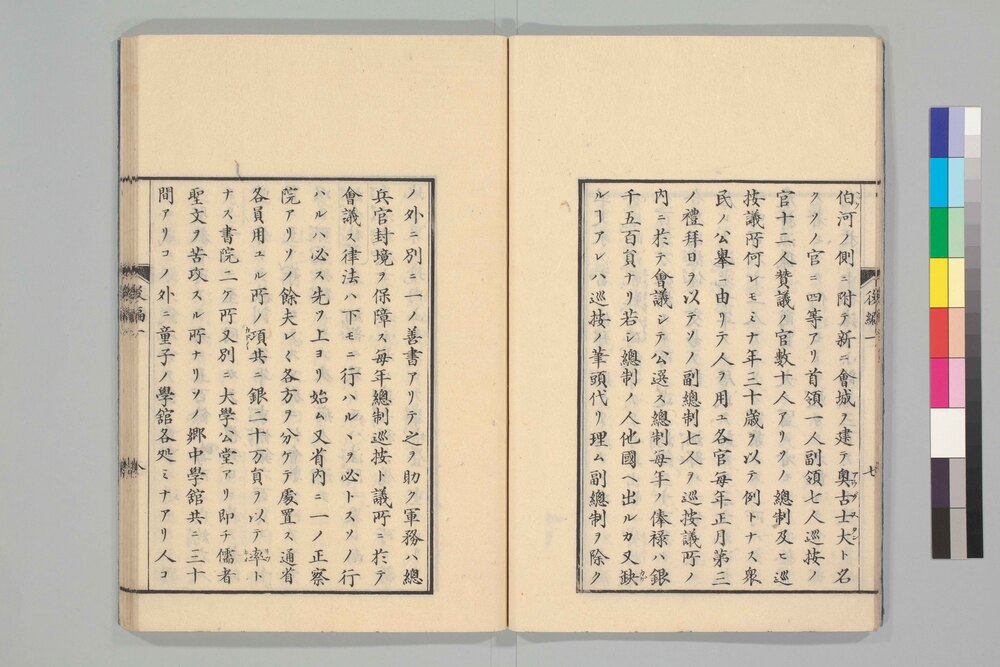 伯河ノ側ニ附テ新ニ會城ヲ建テ奥古士大ト名
クソノ官ニ四等アリ首領一人副領七人巡按ノ
官十二人贊議ノ官數十人アリソノ總制及ヒ巡
按議所何レモミナ年三十歳ヲ以テ例トナス衆
民ノ公舉ニ由リテ人ヲ用ユ各官毎年正月第三
ノ禮拜日ヲ以テソノ副總制七人ヲ巡按議所ノ
内ニ於テ會議シテ公選ス總制毎年ノ俸禄ハ銀
千五百員ナリ若シ總制ノ人他國ヘ出ルカ又缺
ルヿアレハ巡按ノ筆頭代リ理ム副總制ヲ除ク
後編一
七
ノ外ニ別ニ一ノ善書アリテ之ヲ助ク軍務ハ總
兵官封境ヲ保障ス毎年總制巡按ト議所ニ於テ
會議ス律法ハ下モニ行ハルヽヲ必トスソノ行
ハルハ必ス先ヲ上ヨリ始ム又省内ニ一ノ正察
院アリソノ餘夫レ〱各方ヲ分ケテ處置ス通省
各員用ユル所ノ項共ニ銀二十万員ヲ以テ率ト
ナス書院二ケ所又別ニ大學公堂アリ即チ儒者
聖文ヲ苦攻スル所ナリソノ郷中學館共ニ三十
間アリコノ外ニ童子ノ學館各処ミナアリ人コ